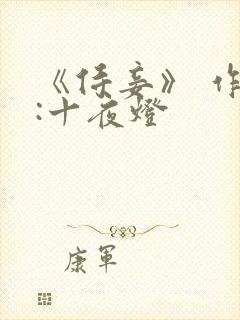 《侍妾》 作
:十夜燈
康軍